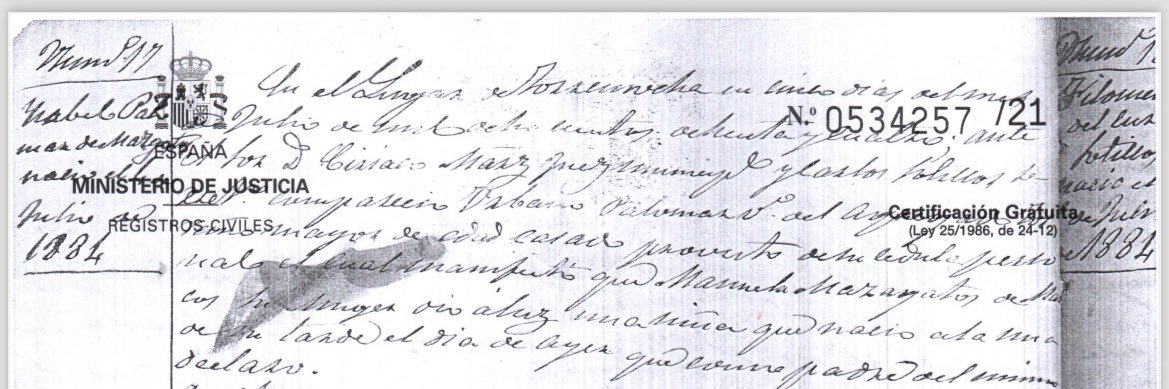 Num.º 17
Ysabel Palo
mar de Maza
nació el
Julio de
1884
ESPAÑA
MINISTERIO DE JUSTICIA
REGISTROS CIVILES
N.º 0534257 /21
Certificación Gratuita
(Ley 25/1986, de 24-12)
En el Lugar de Torremocha en cinco dias del mes
Julio de mil ochocientos ochenta y cuatro, ante
D Ciriaco Juez municipl y Carlos Sotillos Se
compareció Urbano Palomar
mayor de edad casado provisto de su cedula perso
nal el cual manifestó que Manuela Mazagatos de
su muger dio á luz una niña que nacio a la una
de su tarde el dia de ayer que como padre del mismo
declaro.
Num.º
Filomena
del
Sotillos
nacio el
de Julio
1884